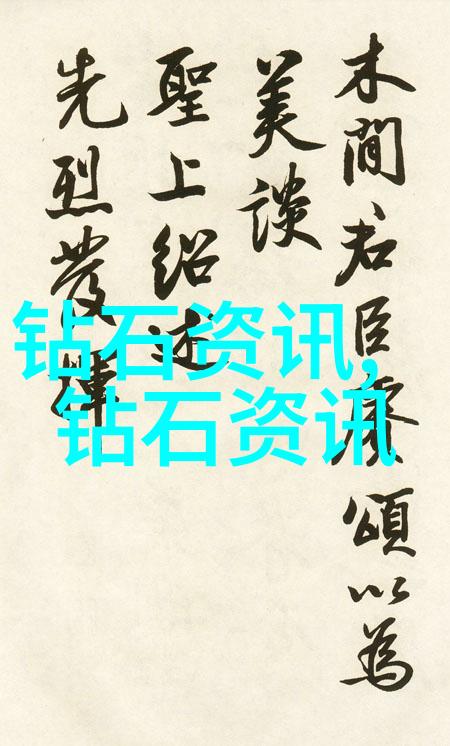 木間君臣頌以為
美談
聖上紹述
先烈發
钻石资讯,
钻石资讯